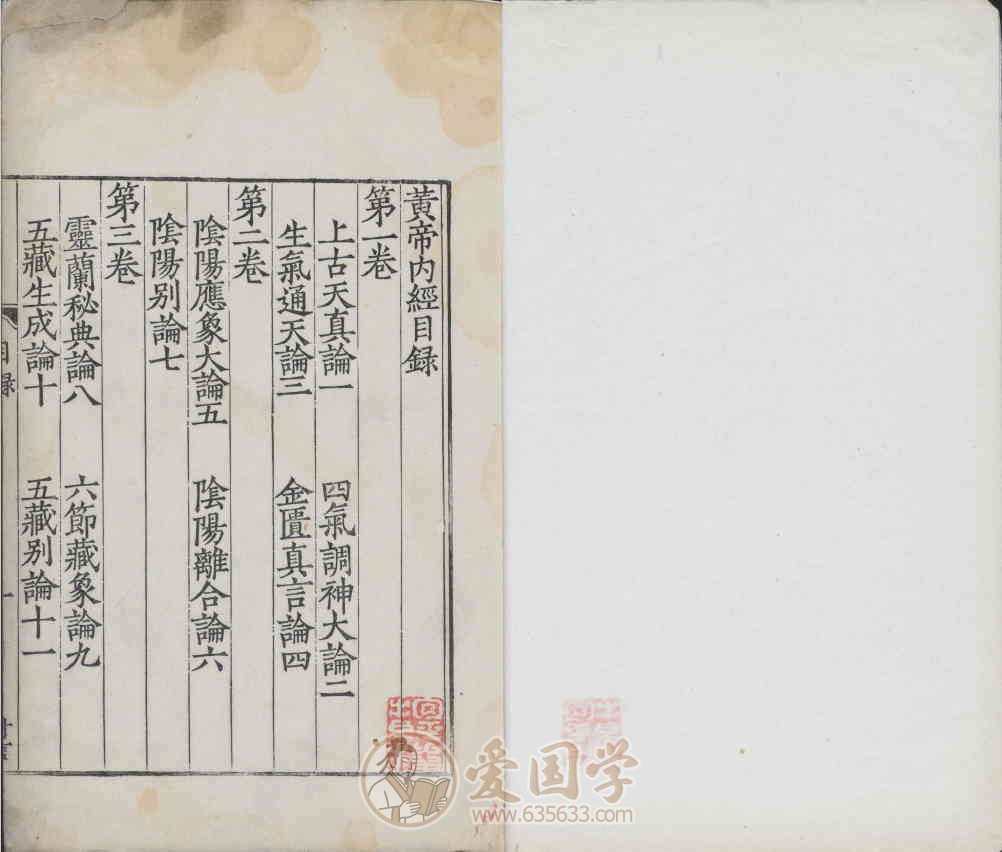 黃帝内經目録
第一卷
上古天真論一　四氣調神大論二
生氣通天論三　金匱真言論四
第二卷
陰陽應象大論五　陰陽離合論六
陰陽别論七
第三卷
靈蘭秘典論八　六節藏象論九
五藏生成論十　五藏别論十一
目録　一
爱国学
www.635633.com